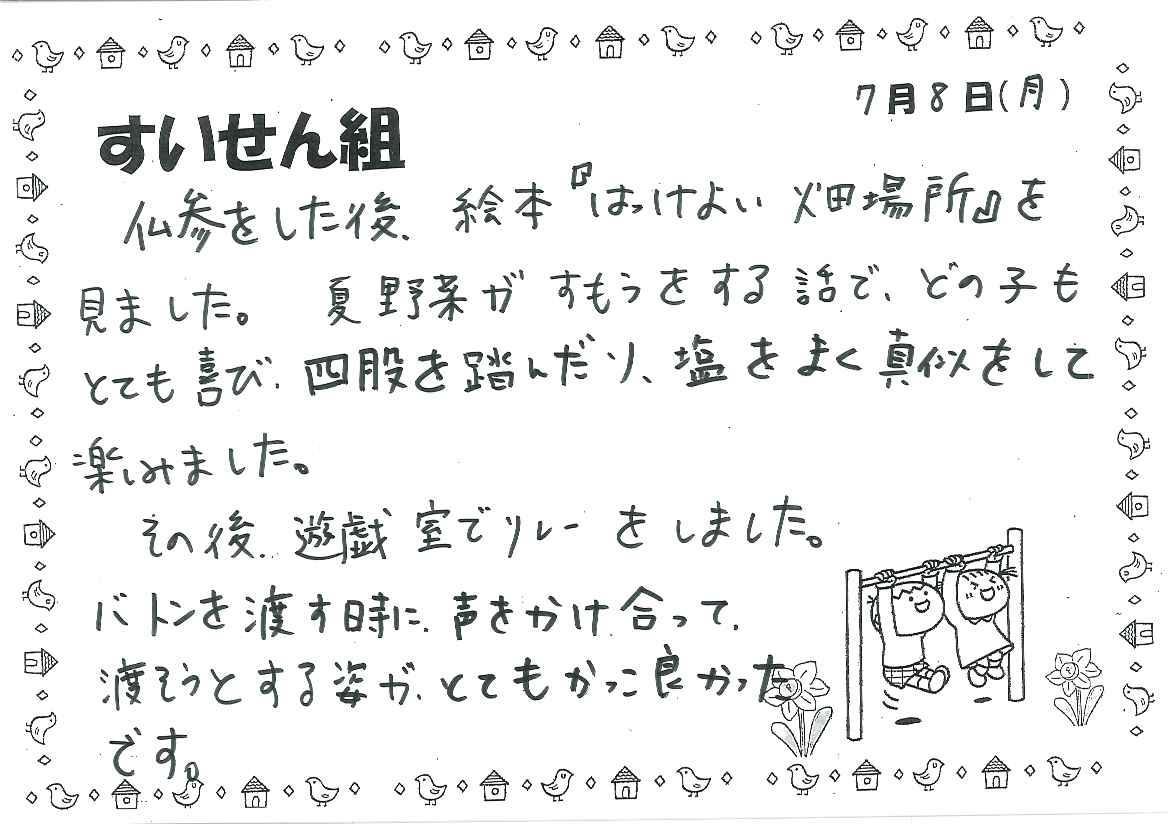 7月8日(月)
すいせん組
仏参をした後、絵本『はっけよい畑場所』を
見ました。夏野菜がすもうをする話で、どの子も
とても喜び、四股を踏んだり、塩をまく真似をして
楽しみました。
その後、遊戯室でリレーをしました。
バトンを渡す時に、声をかけ合って、
渡そうとする姿が、とてもかっこ良かった
です。